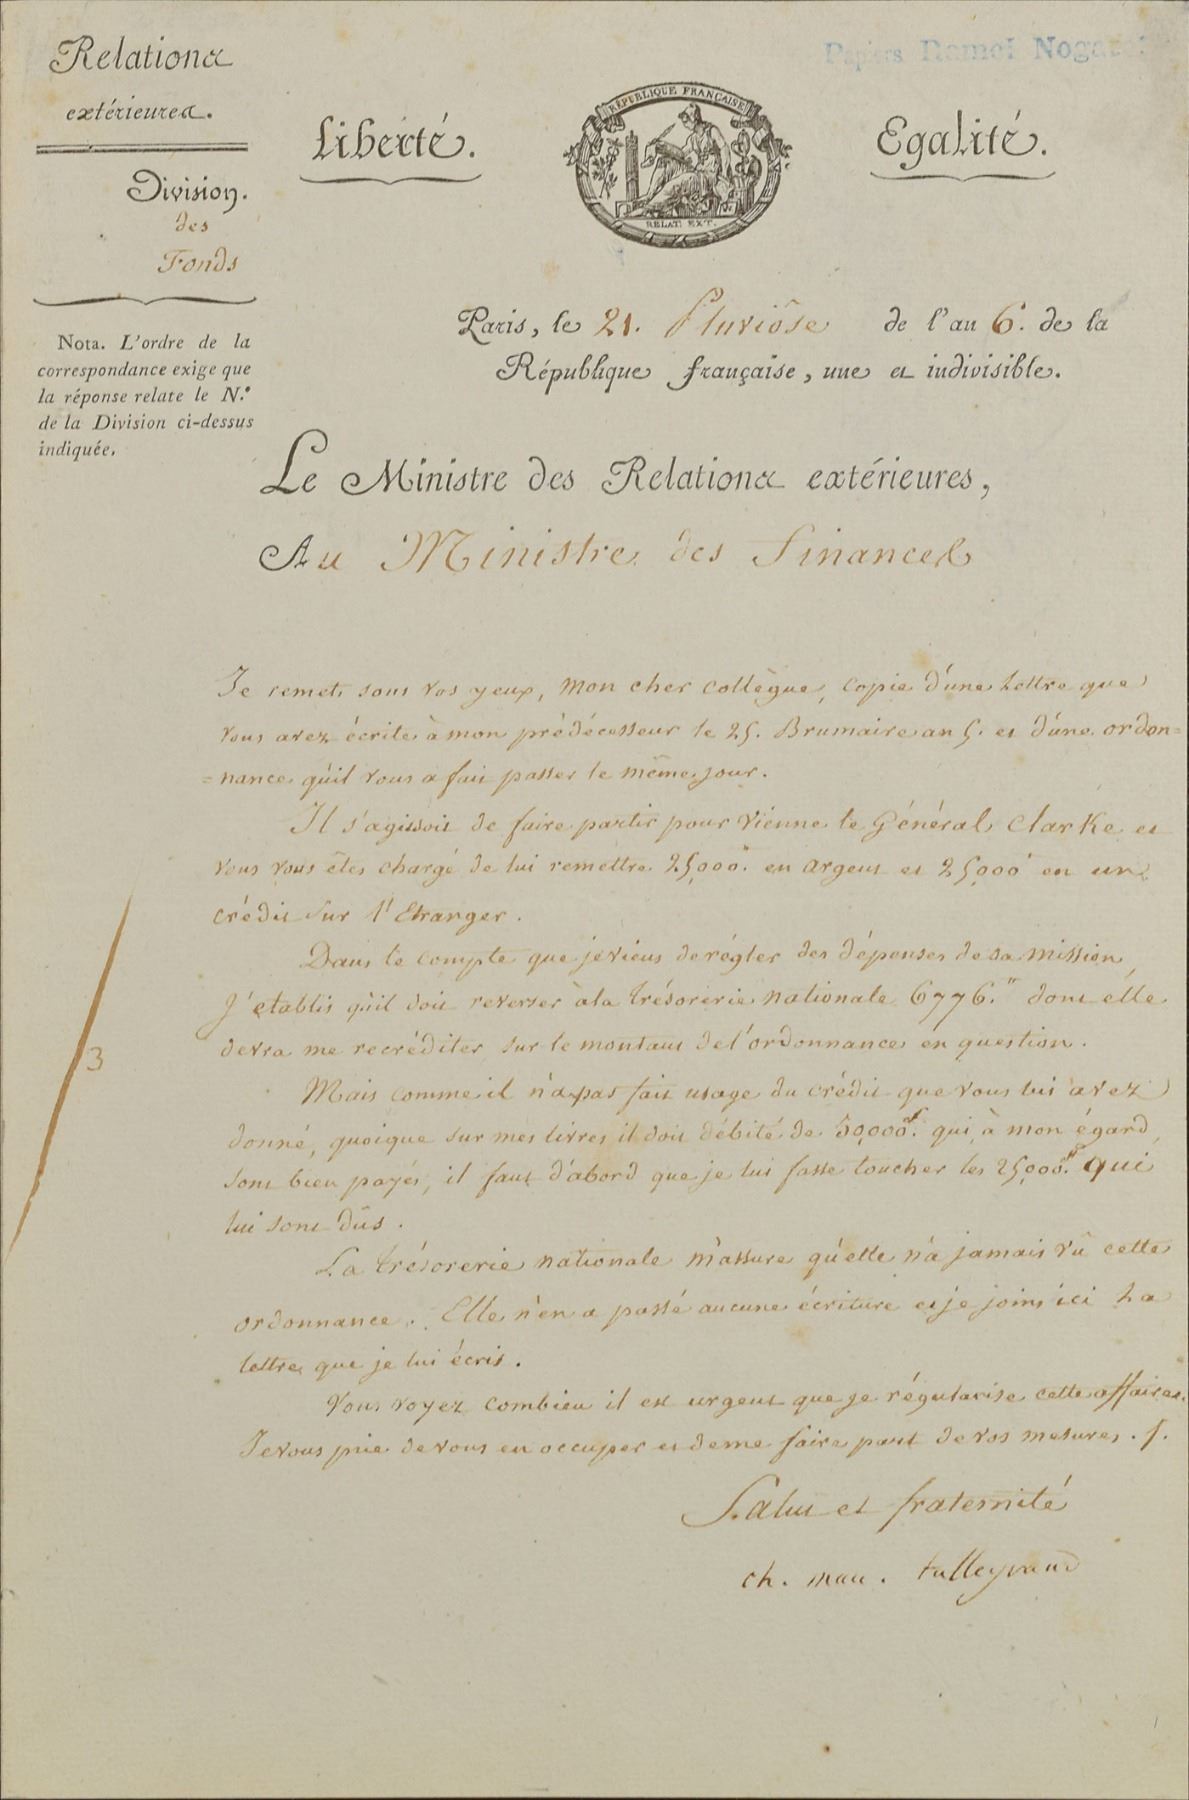 Relations
extérieures.
Division.
des
Fonds
Nota. L'ordre de la
correspondance exige que
la réponse relate le N.º
de la Division ci-dessus
indiquée.
Papiers Ramel Nogaret
Liberté.
RÉPUBLIQUE FRANÇAISE
RELAT. EXT.
Egalité.
Paris, le 21. Pluviôse de l'an 6. de la
République française, une et indivisible.
Le Ministre des Relations extérieures,
Au Ministre des finances
Je remets sous vos yeux, mon cher collègue, copie d'une Lettre que
vous avez écrite à mon prédécesseur le 25. Brumaire an 5. et d'une ordon=
=nance qu'il vous a fait passer le même jour.
Il s'agissoit de faire partir pour Vienne le Général Clarke et
vous vous êtes chargé de lui remettre 25,000.ᶠ en argent et 25,000ᶠ en un
crédit sur l'Etranger.
Dans le compte que je viens de régler des dépenses de sa mission,
J'etablis qu'il doit reverser à la trésorerie nationale 6776.ᶠ dont elle
devra me recréditer sur le montant de l'ordonnance en question.
Mais comme il n'a pas fait usage du crédit que vous lui avez
donné, quoique sur mes livres il soit débité de 50,000ᶠ. qui, à mon égard,
sont bien payés, il faut d'abord que je lui fasse toucher les 25,000.ᶠ qui
lui sont dûs.
La trésorerie nationale m'assure qu'elle n'a jamais vû cette
ordonnance. Elle n'en a passé aucune écriture et je joins ici La
lettre que je lui écris.
Vous voyez combien il est urgent que je régularise cette affaire.
Je vous prie de vous en occuper et de me faire part de vos mesures. /.
Salut et fraternité
ch. mau. talleyrand
3